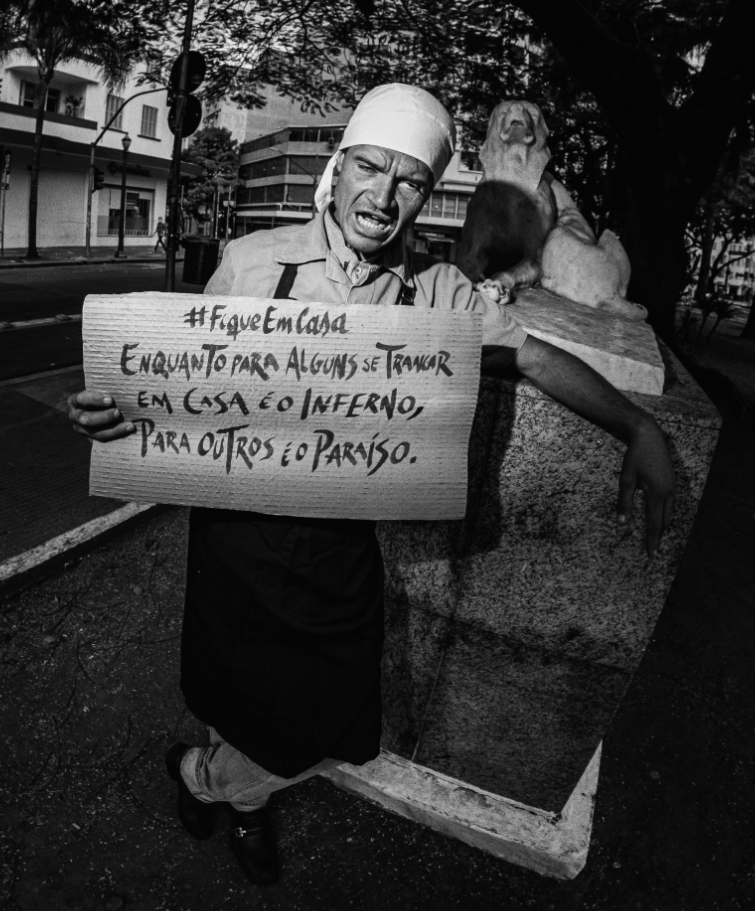 #FiqueEmCasa
ENQUANTO PARA ALGUNS SE TRANCAR
EM CASA É O INFERNO,
PARA OUTROS É O PARAÍSO.